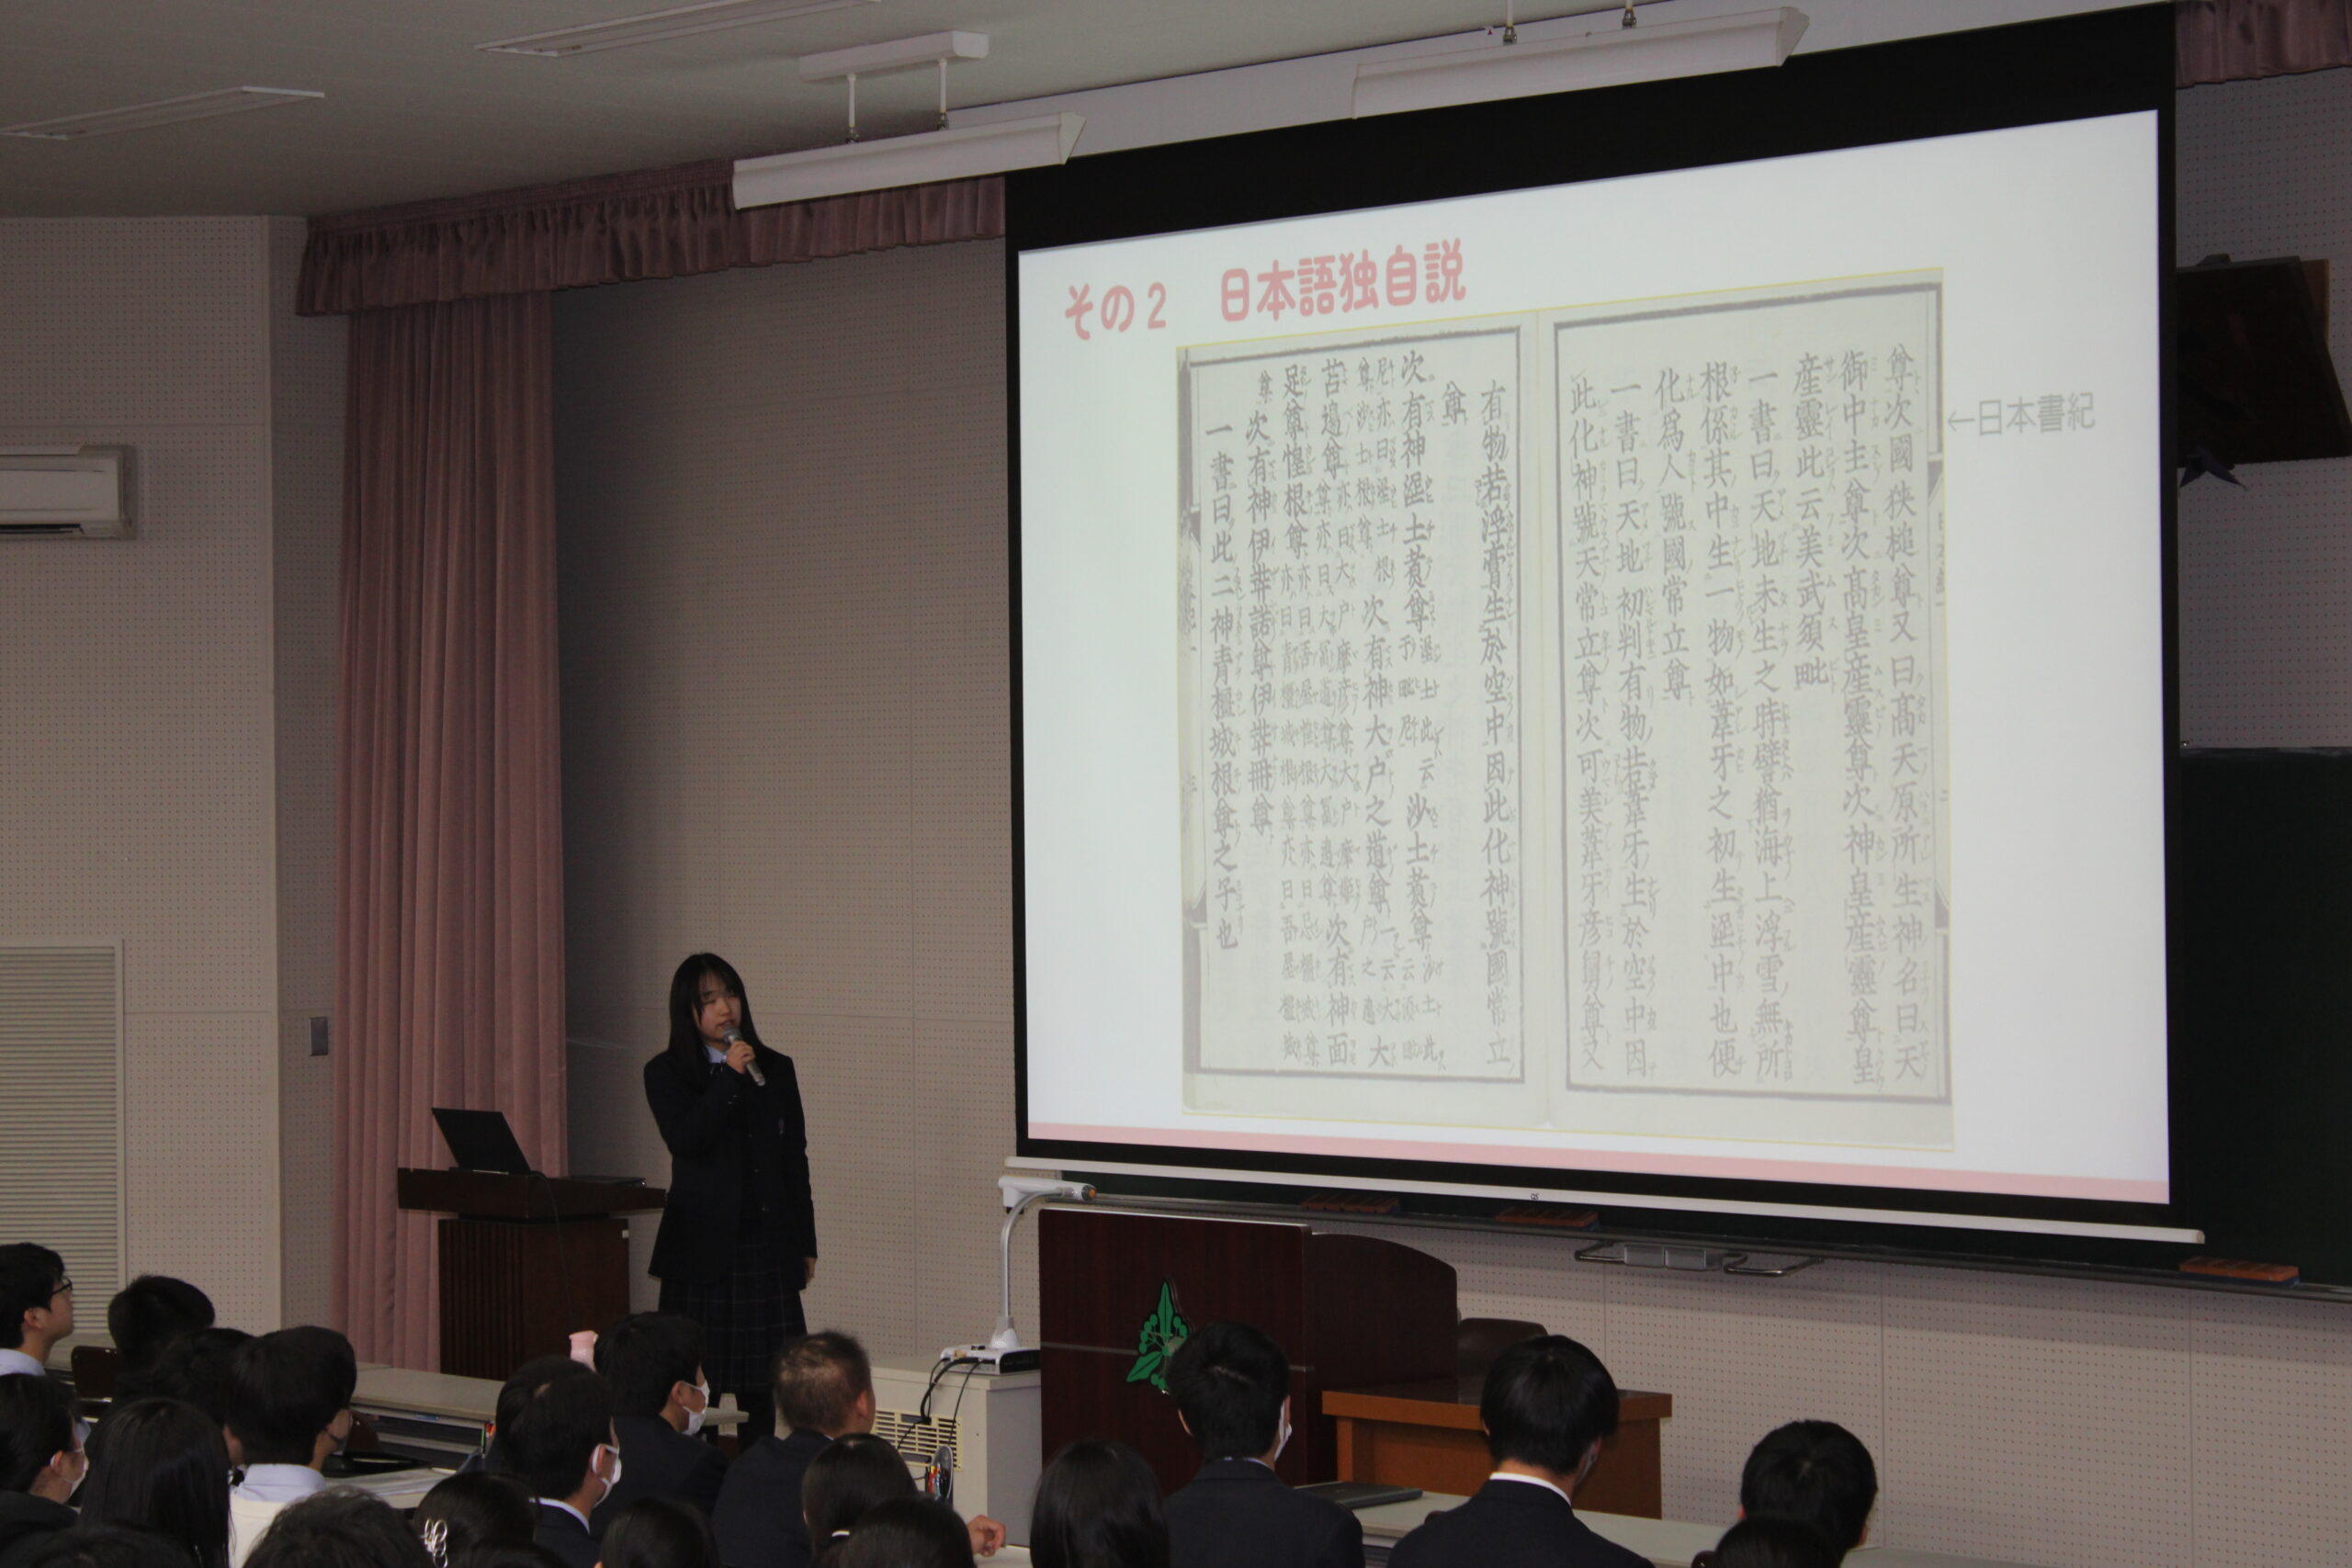 その2 日本語独自説
←日本書紀
尊次國狹槌尊又曰高天原所生神名曰天
御中主尊次高皇産靈尊次神皇産靈尊皇
産靈此云美武須毗
一書曰天地未生之時譬猶海上浮雪無所
根係其中生一物如葦牙之初生埿中也便
化爲人號國常立尊
一書曰天地初判有物若葦牙生於空中因
此化神號天常立尊次可美葦牙彦舅尊又
有物若浮膏生於空中因此化神號國常立
尊
次有神埿土煑尊 沙土煑尊
次有神大戸之道尊 大
苫邊尊 次有神面
足尊惶根尊
次有神伊弉諾尊伊弉冊尊
一書曰此二神青橿城根尊之子也